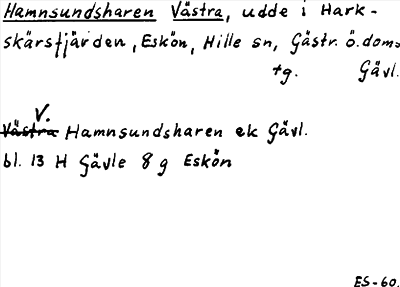 Hamnsundsharen Västra, udde i Hark-
skärsfjärden, Eskön, Hille sn, Gästr. ö. doms
tg. Gävl.
V.
Västra Hamnsundsharen ek Gävl.
bl. 13 H Gävle 8 g Eskön
ES-60.